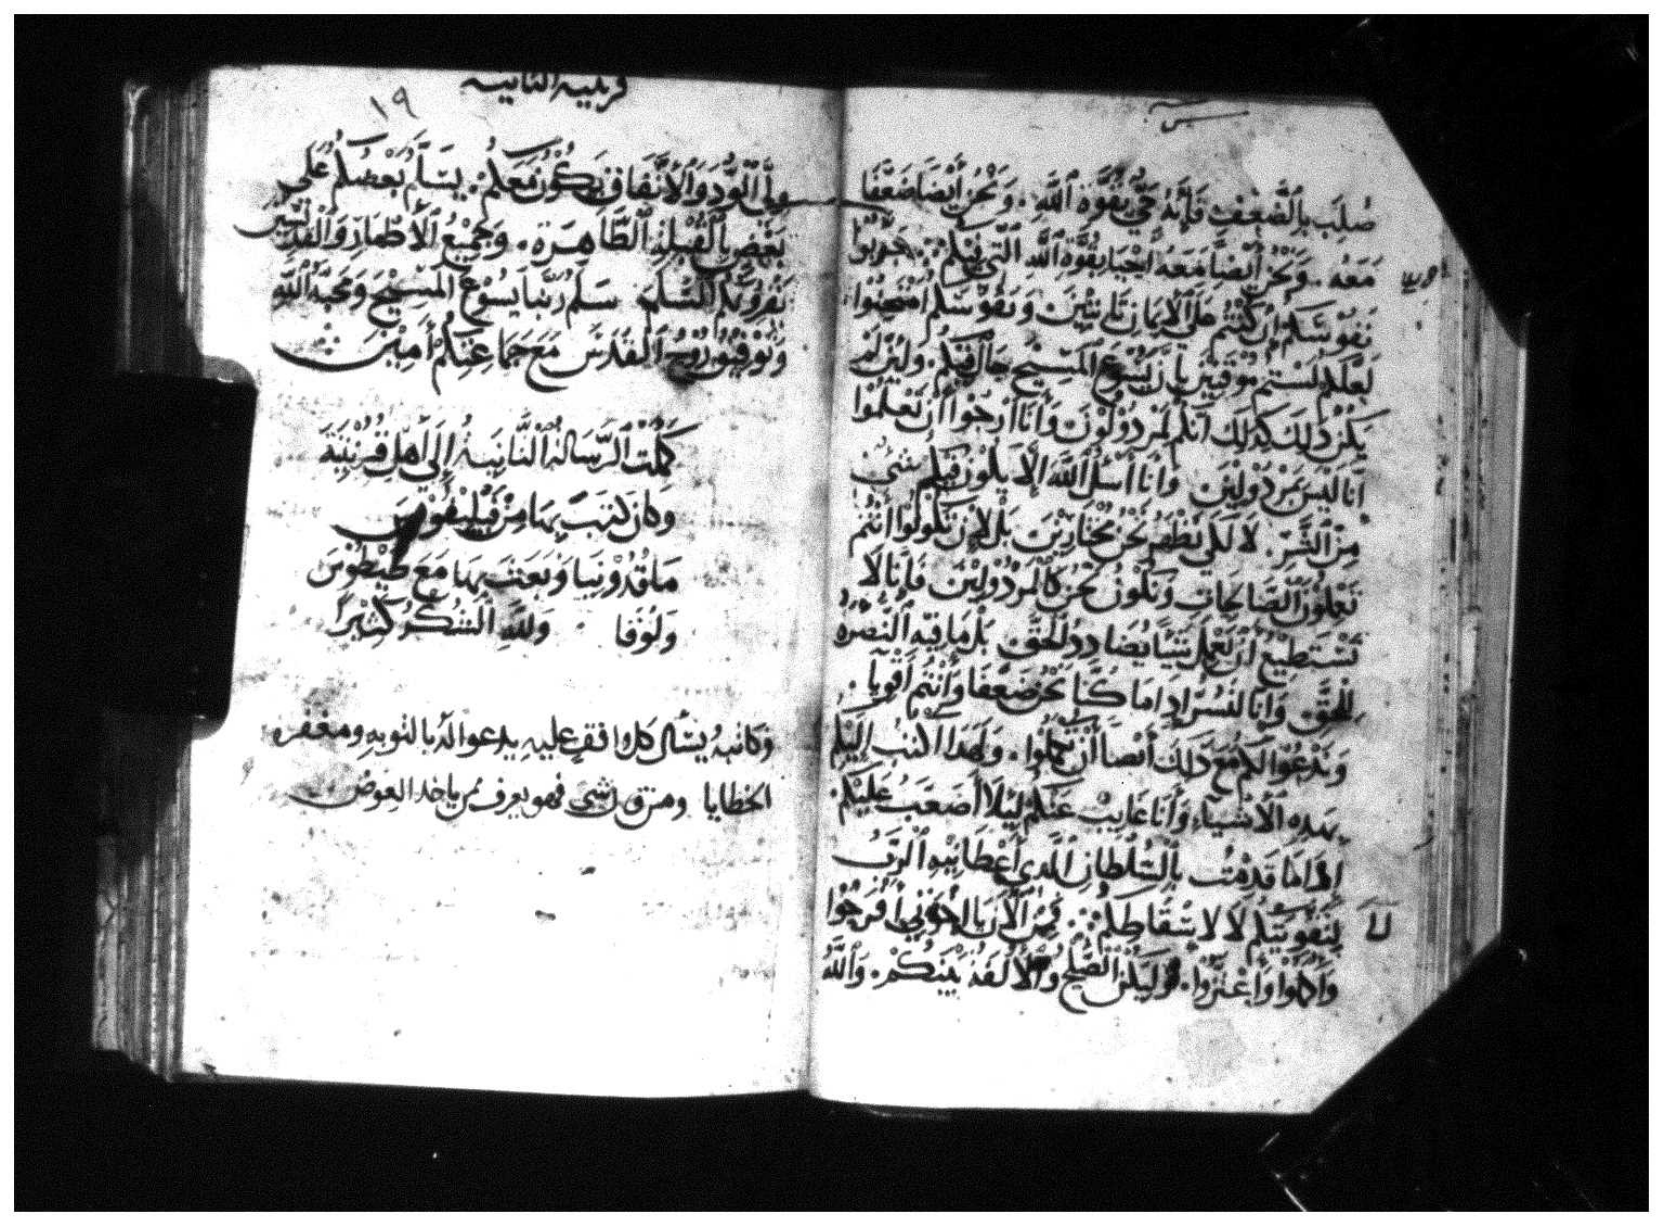 صُلِبَ بِالضَّعْفِ فَإِنَّهُ حَيٌّ بِقُوَّةِ اللَّهِ. وَنَحْنُ أَيْضًا ضُعَفَا
مَعَهُ. وَنَحْنُ أَيْضًا مَعَهُ لَنَحْيَا بِقُوَّةِ اللَّهِ الَّتِي فِيكُم. جَرِّبُوا
نفوسَكم إن كنتم على الايمان ثابتين ونفوسكم امتحنوا
لعلكم لستم موقنين بأن يسوع المسيح حال فيكم. ولئن لم
يكن ذلك كذلك انكم لمردولون وأنا ارجوا أن تعلموا
أنا ليس بمردولين وأنا أسل الله ألا يكون فيكم شي
من الشر. لا لكي نظهر نحن مختارين بل لان تكونوا أنتم
تعملون الصالحات ونكون نحن كالمردولين فإنا لا
نستطيع أن نعمل شيئا يضادد للحق بل ما فيه النصره
للحق. وإنا لنسر ادا ما كنا نحن ضعفا وأنتم أقويا.
وندعوا لكم مع دلك أيضا أن تكملوا. ولهدا اكتب اليكم
بهده الاشياء وأنا غايب عنكم ليلا أصعب عليكم.
إدا ما قدمت بالسلطان الدي أعطانيه الرب
لتقويتكم لا لاسقاطكم. فمن الآن يا اخوتي أفرحوا
وأكملوا وأعتزوا. وليكن الصلح والألفة بينكم. والله
قرنتيه الثانيه
١٩
ولي الود والاتفاق يكون معكم. يسلم بعضكم على
بعض بالقبلة الطاهرة. وجميع الأطهار والقديسين
يقرونكم السلم سلم ربنا يسوع المسيح ومحبة الله
وتوفيق روح القدس مع جماعتكم أمين
كملت الرسالة الثانية إلى أهل قرنتية
وكان كتب بها من فيليفوس
ماقدونيا وبعث بها مع طيطوس
ولوقا ولله الشكر كثيرا
وكاتبه يسأل كل واقف عليه يدعوا له بالتوبه ومغفرة
الخطايا ومن شي فهو يعرف ممن ياخد العوض